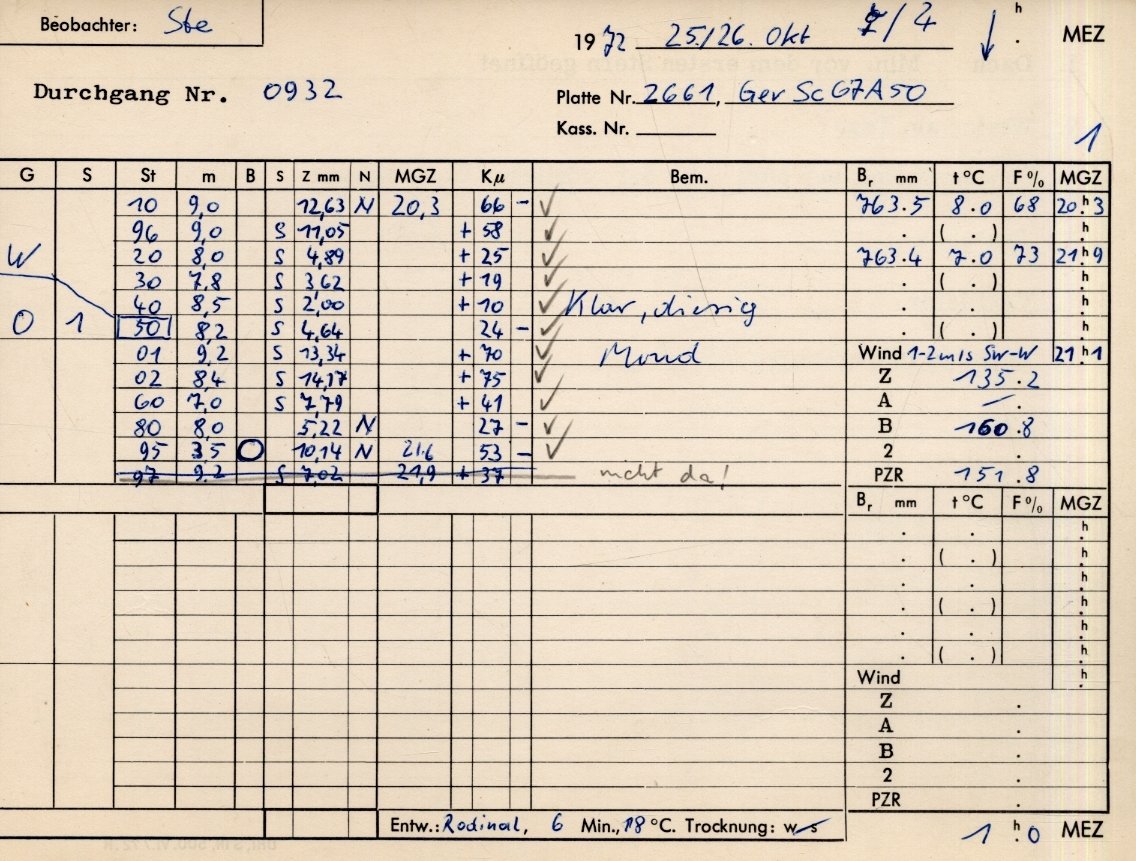 Beobachter: Ste
1972 25./26. Okt 2/4 h . MEZ
Durchgang Nr. 0932
Platte Nr. 2661, Gev Sc 67A50
Kass. Nr.
1
G S St m B S Z mm N MGZ Kμ Bem. Br mm t °C F % MGZ
10 9,0 12,63 N 20,3 66 - ✓ 763.5 8.0 68 20.h3
96 9,0 S 11,05 + 58 ✓ . ( . ) .h
W 20 8,0 S 4,89 + 25 ✓ 763.4 7.0 73 21.h9
30 7,8 S 3,62 + 19 ✓ . ( . ) .h
40 8,5 S 2,00 + 10 ✓ Klar, diesig . . .h
O 1 50 8,2 S 4,64 24 - ✓ . ( . ) .h
01 9,2 S 13,34 + 70 ✓ Mond Wind 1-2 m/s SW-W 21.h1
02 8,4 S 14,17 + 75 ✓ Z 135.2
60 7,0 S 7,79 + 41 ✓ A — .
80 8,0 5,22 N 27 - ✓ B 160.8
95 3,5 O 10,14 N 21,6 53 - ✓ 2 .
97 9,2 S 7,02 21,9 + 37 nicht da! PZR 151.8
Br mm t °C F % MGZ
. . .h
. ( . ) .h
. . .h
. ( . ) .h
. . .h
. ( . ) .h
Wind .h
Z .
A .
B .
2 .
PZR .
Entw.: Rodinal, 6 Min., 18 °C. Trocknung: w s
1 h.0 MEZ